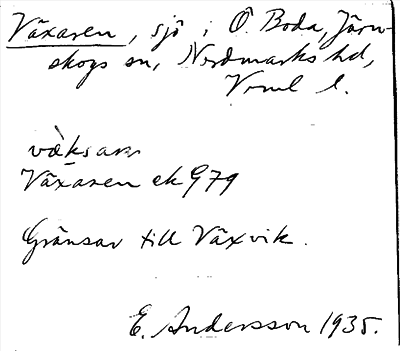 Växaren, sjö i Ö. Boda, Järn-
skogs sn, Nordmarks hd,
Vrml l.
väksarn
Växaren ek G79
Gränsar till Växvik.
E. Andersson 1935.